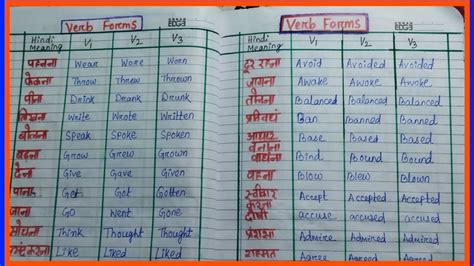 Verb Forms
Hindi Meaning V1 V2 V3
पहनना Wear Wore Worn
फेंकना Throw Threw Thrown
पीना Drink Drank Drunk
लिखना Write Wrote Written
बोलना Speak Spoke Spoken
बढ़ना Grow Grew Grown
देना Give Gave Given
पाना Get Got Gotten
जाना Go Went Gone
सोचना Think Thought Thought
Like Liked Liked
Verb Forms
Hindi Meaning V1 V2 V3
दूर रहना Avoid Avoided Avoided
जागना Awake Awoke Awoken
तोलना Balanced Balanced Balanced
प्रतिबंध Ban Banned Banned
आधार बनाना Base Based Based
बांधना Bind Bound Bound
बहना Blow Blew Blown
स्वीकार करना Accept Accepted Accepted
दोषी accuse accused accused
प्रशंसा Admire Admired Admired
सहमत Agree Agreed Agreed